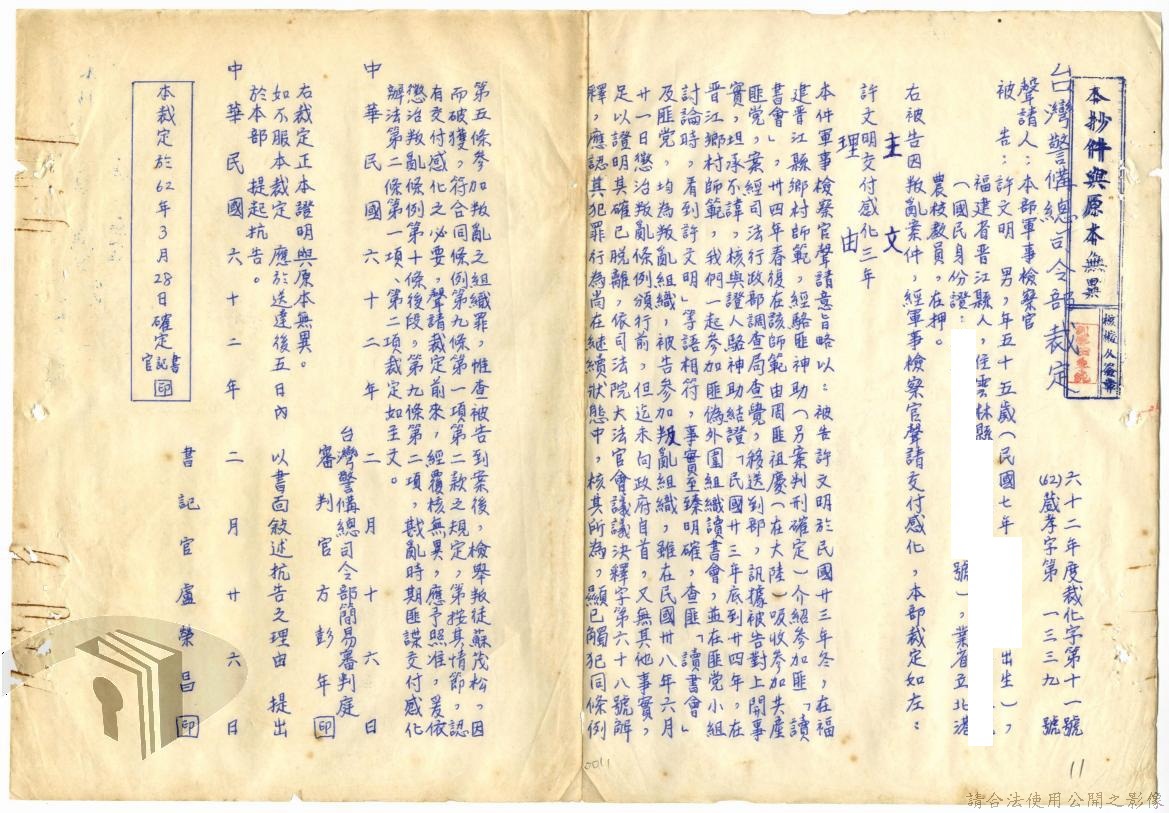 本抄件與原本無異
核校人簽章
台灣警備總司令部裁定
六十二年度裁化字第十一號
(62)蔵孝字第一三三九號
聲請人：本部軍事檢察官
被告：許文明 男，年五十五歲（民國七年
出生），
福建省晋江縣人，住雲林縣
（國民身份證：
號），業省立北港
農校教員，在押。
右被告因叛亂案件，經軍事檢察官聲請交付感化，本部裁定如左：
主文
許文明交付感化三年
理由
本件軍事檢察官聲請意旨略以：被告許文明於民國廿三年冬，在福
建晋江縣鄉村師範，經駱匪神助（另案判刑確定）介紹參加匪「讀
書會」，廿四年春復在該師範由周匪祖慶（在大陸）吸收參加共產
匪党，案經司法行政部調查局查覺，移送到部，訊據被告對上開事
實，坦承不諱，核與證人駱神助結證「民國廿三年底到廿四年，在
晋江鄉村師範，我們一起參加匪偽外圍組織讀書會，並在匪党小組
討論時，看到許文明」等語相符，事實至臻明確，查匪「讀書會」
及匪党，均為叛亂組織，被告參加叛亂組織，雖在民國卅八年六月
廿一日懲治叛亂條例頒行前，但迄未向政府自首，又無其他事實，
足以證明其確已脱離，依司法院大法官會議議決釋字第六十八號解
釋，應認其犯罪行為尚在継續狀態中，核其所為，顯已觸犯同條例
第五條参加叛亂之組織罪，惟查被告到案後，檢舉叛徒蘇茂松，因
而破獲，符合同條例第九條第一項第二款之規定，第按其情節，認
有交付感化之必要，聲請裁定前來，經覆核無異，應予照准，爰依
懲治叛亂條例第十條後段，第九條第二項，戡亂時期匪諜交付感化
辦法第二條第一項、第二項裁定如主文。
中華民國六十二年二月十六日
台灣警備總司令部簡易審判庭
審判官方彭年 印
右裁定正本證明與原本無異。
如不服本裁定，應於送達後五日內，以書面敘述抗告之理由，提出
於本部，提起抗告。
中華民國六十二年二月廿六日
書記官盧榮昌 印
本裁定於62年3月28日確定
書記官 印
0011
11
請合法使用公開之影像